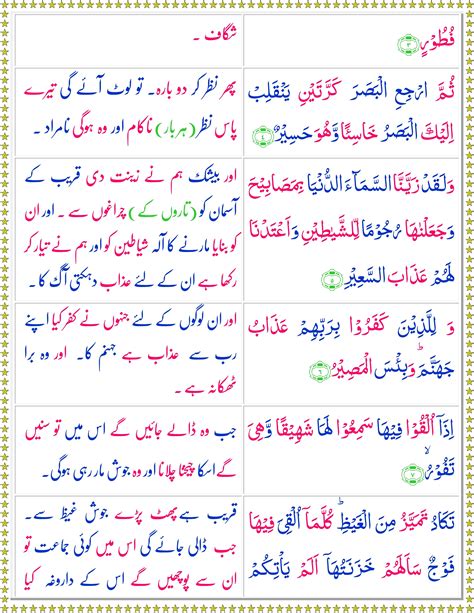 فُطُوْرٍ ﴿۳﴾
شگاف ۔
ثُمَّ ارْجِعِ الْبَصَرَ كَرَّتَيْنِ يَنْقَلِبْ
اِلَيْكَ الْبَصَرُ خَاسِئًا وَّهُوَ حَسِيْرٌ ﴿۴﴾
پھر نظر کر دو بارہ۔ تو لوٹ آئے گی تیرے
پاس نظر (ہر بار) ناکام اور وہ ہوگی نامراد ۔
وَلَقَدْ زَيَّنَّا السَّمَآءَ الدُّنْيَا بِمَصَابِيْحَ
وَجَعَلْنٰهَا رُجُوْمًا لِّلشَّيٰطِيْنِ وَاَعْتَدْنَا
لَهُمْ عَذَابَ السَّعِيْرِ ﴿۵﴾
اور بیشک ہم نے زینت دی قریب کے
آسمان کو (تاروں کے) چراغوں سے ۔ اور ان
کو بنایا مارنے کا آلہ شیاطین کو اور ہم نے تیار کر
رکھا ہے ان کے لئے عذاب دہکتی آگ کا ۔
وَ لِلَّذِيْنَ كَفَرُوْا بِرَبِّهِمْ عَذَابُ
جَهَنَّمَ ؕ وَبِئْسَ الْمَصِيْرُ ﴿۶﴾
اور ان لوگوں کے لئے جنہوں نے کفر کیا اپنے
رب سے عذاب ہے جہنم کا۔ اور وہ برا
ٹھکانہ ہے ۔
اِذَاۤ اُلْقُوْا فِيْهَا سَمِعُوْا لَهَا شَهِيْقًا وَّهِيَ
تَفُوْرُ ۙ ﴿۷﴾
جب وہ ڈالے جائیں گے اس میں تو سنیں
گے اسکا چیخنا چلانا اور وہ جوش مار رہی ہوگی۔
تَكَادُ تَمَيَّزُ مِنَ الْغَيْظِ ؕ كُلَّمَاۤ اُلْقِيَ فِيْهَا
فَوْجٌ سَاَلَهُمْ خَزَنَتُهَاۤ اَلَمْ يَاْتِكُمْ
قریب ہے پھٹ پڑے جوش غیظ سے۔
جب ڈالی جائے گی اس میں کوئی جماعت تو
ان سے پوچھیں گے اس کے داروغہ کیا